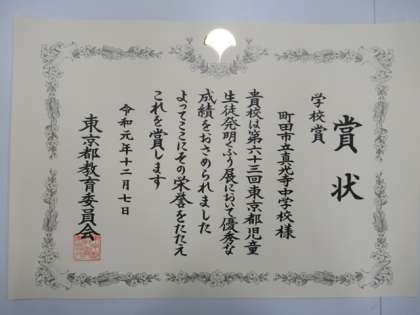 賞状
学校賞
町田市立真光寺中学校様
貴校は第六十三回東京都児童
生徒発明くふう展において優秀な
成績をおさめられました
よってここにその栄誉をたたえ
これを賞します
令和元年十二月七日
東京都教育委員会